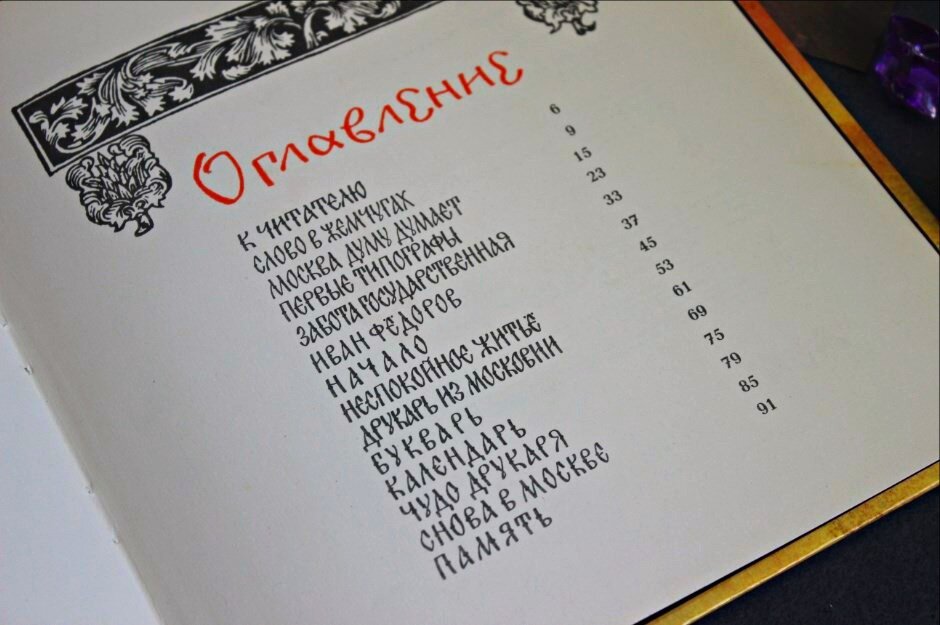 Оглавление
К ЧИТАТЕЛЮ 6
СЛОВО В ЖЕМЧУГАХ 9
МОСКВА ДУМУ ДУМАЕТ 15
ПЕРВЫЕ ТИПОГРАФЫ 23
ЗАБОТА ГОСУДАРСТВЕННАЯ 33
ИВАН ФЁДОРОВ 37
НАЧАЛО 45
НЕСПОКОЙНОЕ ЖИТЬЁ 53
ДРУКАРЬ ИЗ МОСКОВИИ 61
БУКВАРЬ 69
КАЛЕНДАРЬ 75
ЧУДО ДРУКАРЯ 79
СНОВА В МОСКВЕ 85
ПАМЯТЬ 91